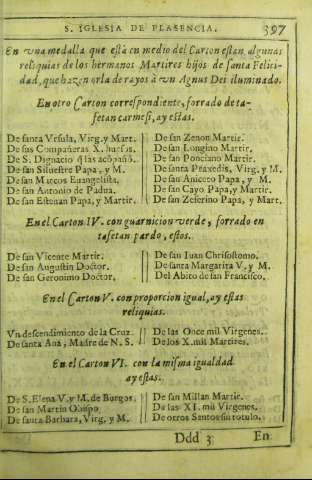 S. IGLESIA DE PLASENCIA. 397
En vna medalla que està en medio del Carton estan algunas
reliquias de los hermanos Martires hijos de santa Felici-
dad, que hazen orla de rayos à vn Agnus Dei iluminado.
En otro Carton correspondiente, forrado de ta-
fetan carmesi, ay estas.
De santa Vrsula, Virg. y Mart.
De sus Compañeras X. huesos.
De S. Dignacio q̃ las acõpañò.
De san Siluestre Papa, y M.
De san Marcos Euangelista.
De san Antonio de Padua.
De san Esteuan Papa, y Mart.
De san Zenon Martir.
De san Longino Martir.
De san Ponciano Martir.
De santa Praxedis, Virg. y M.
De san Aniceto Papa, y M.
De san Cayo Papa, y Martir.
De san Zeferino Papa, y Mart.
En el Carton IV. con guarnicion verde, forrado en
tafetan pardo, estos.
De san Vicente Martir.
De san Augustin Doctor.
De san Geronimo Doctor.
De san Iuan Chrisostomo.
De santa Margarita V. y M.
Del Abito de san Francisco.
En el Carton V. con proporcion igual, ay estas
reliquias.
Vn descendimiento de la Cruz.
De santa Anà, Madre de N. S.
De las Once mil Virgenes.
De los X. mil Martires.
En el Carton VI. con la misma igualdad
ay estas.
De S. Elena V. y M. de Burgos.
De san Martin Obispo.
De santa Barbara, Virg. y M.
De san Millan Martir.
De las XI. mil Virgenes.
De otros Santos sin rotulo.
Ddd 3 En